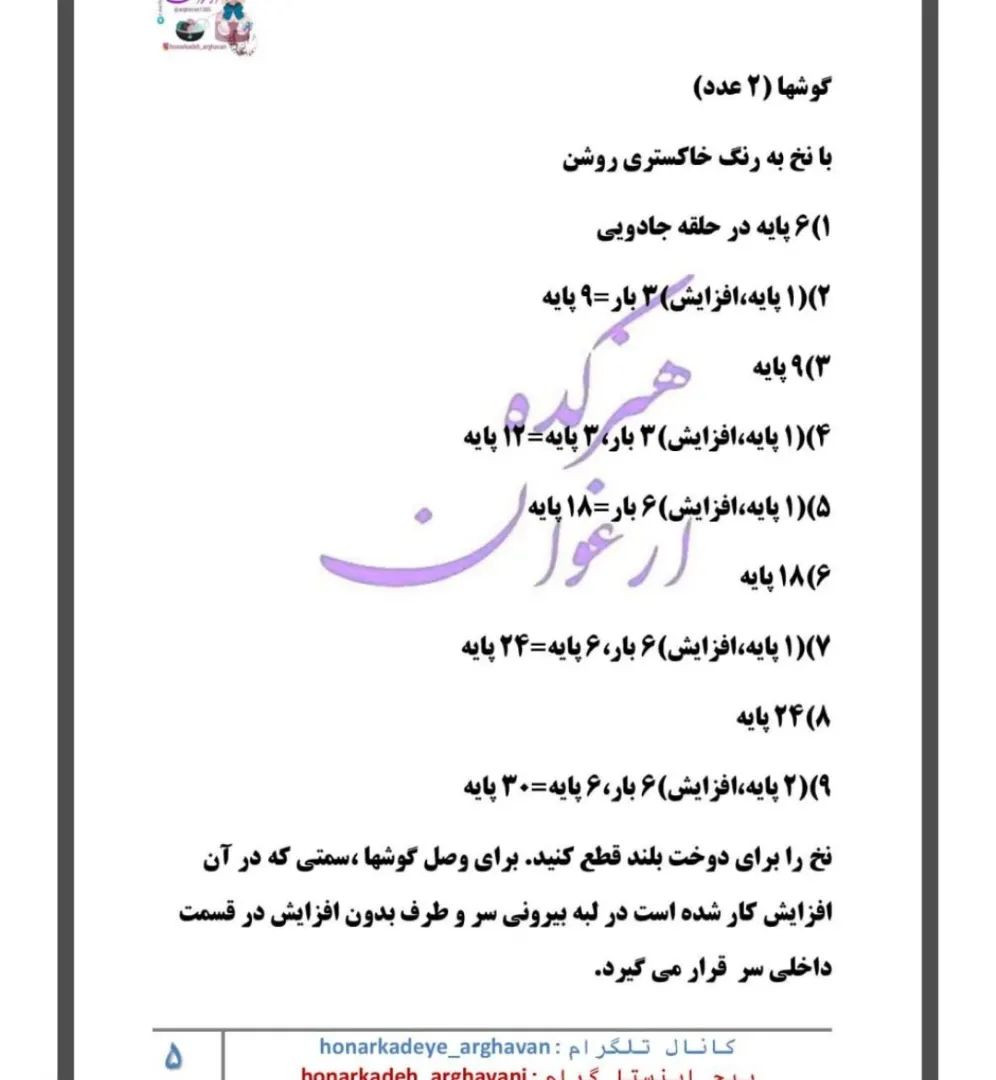 @arghavan1305
honarkadeh_arghavan
گوشها (۲ عدد)
با نخ به رنگ خاکستری روشن
۱)۶ پایه در حلقه جادویی
۲)(۱ پایه،افزایش)۳ بار=۹ پایه
۳)۹ پایه
۴)(۱ پایه،افزایش)۳ بار،۳ پایه=۱۲ پایه
۵)(۱ پایه،افزایش)۶ بار=۱۸ پایه
۶)۱۸ پایه
۷)(۱ پایه،افزایش)۶ بار،۶ پایه=۲۴ پایه
۸)۲۴ پایه
۹)(۲ پایه،افزایش)۶ بار،۶ پایه=۳۰ پایه
هنرکده
ارغوان
نخ را برای دوخت بلند قطع کنید. برای وصل گوشها ،سمتی که در آن
افزایش کار شده است در لبه بیرونی سر و طرف بدون افزایش در قسمت
داخلی سر قرار می گیرد.
کانال تلگرام : honarkadeye_arghavan
پیج اینستاگرام : honarkadeh_arghavani
۵